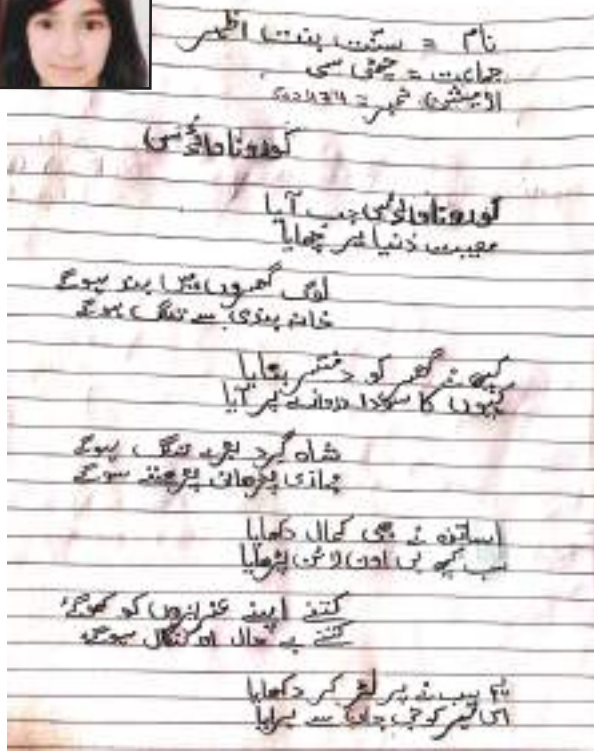 نام = سکینت بنت اظہر
جماعت = چھٹی سی
ایڈمیشن نمبر =
کورونا وائرس
کورونا وائرس جب آیا
مصیبت دنیا پر چھایا
لوگ گھروں میں بند ہوگے
خانہ بندی سے تنگ ہوگے
کچھ نے گھر کو دفتر بنایا
کہیوں کا سودا دروازے پر آیا
شاہ گرد بڑے تنگ ہوگے
پڑھائی
اساتذہ نے بھی کمال دکھایا
سب کچھ ہی اون لائن پڑھایا
کتنے اپنے عزیزوں کو کھوگے
کتنے بے حال اور کنگال ہوگے
سب نے پر لڑ کر دکھایا
اس کو سے ہرایا